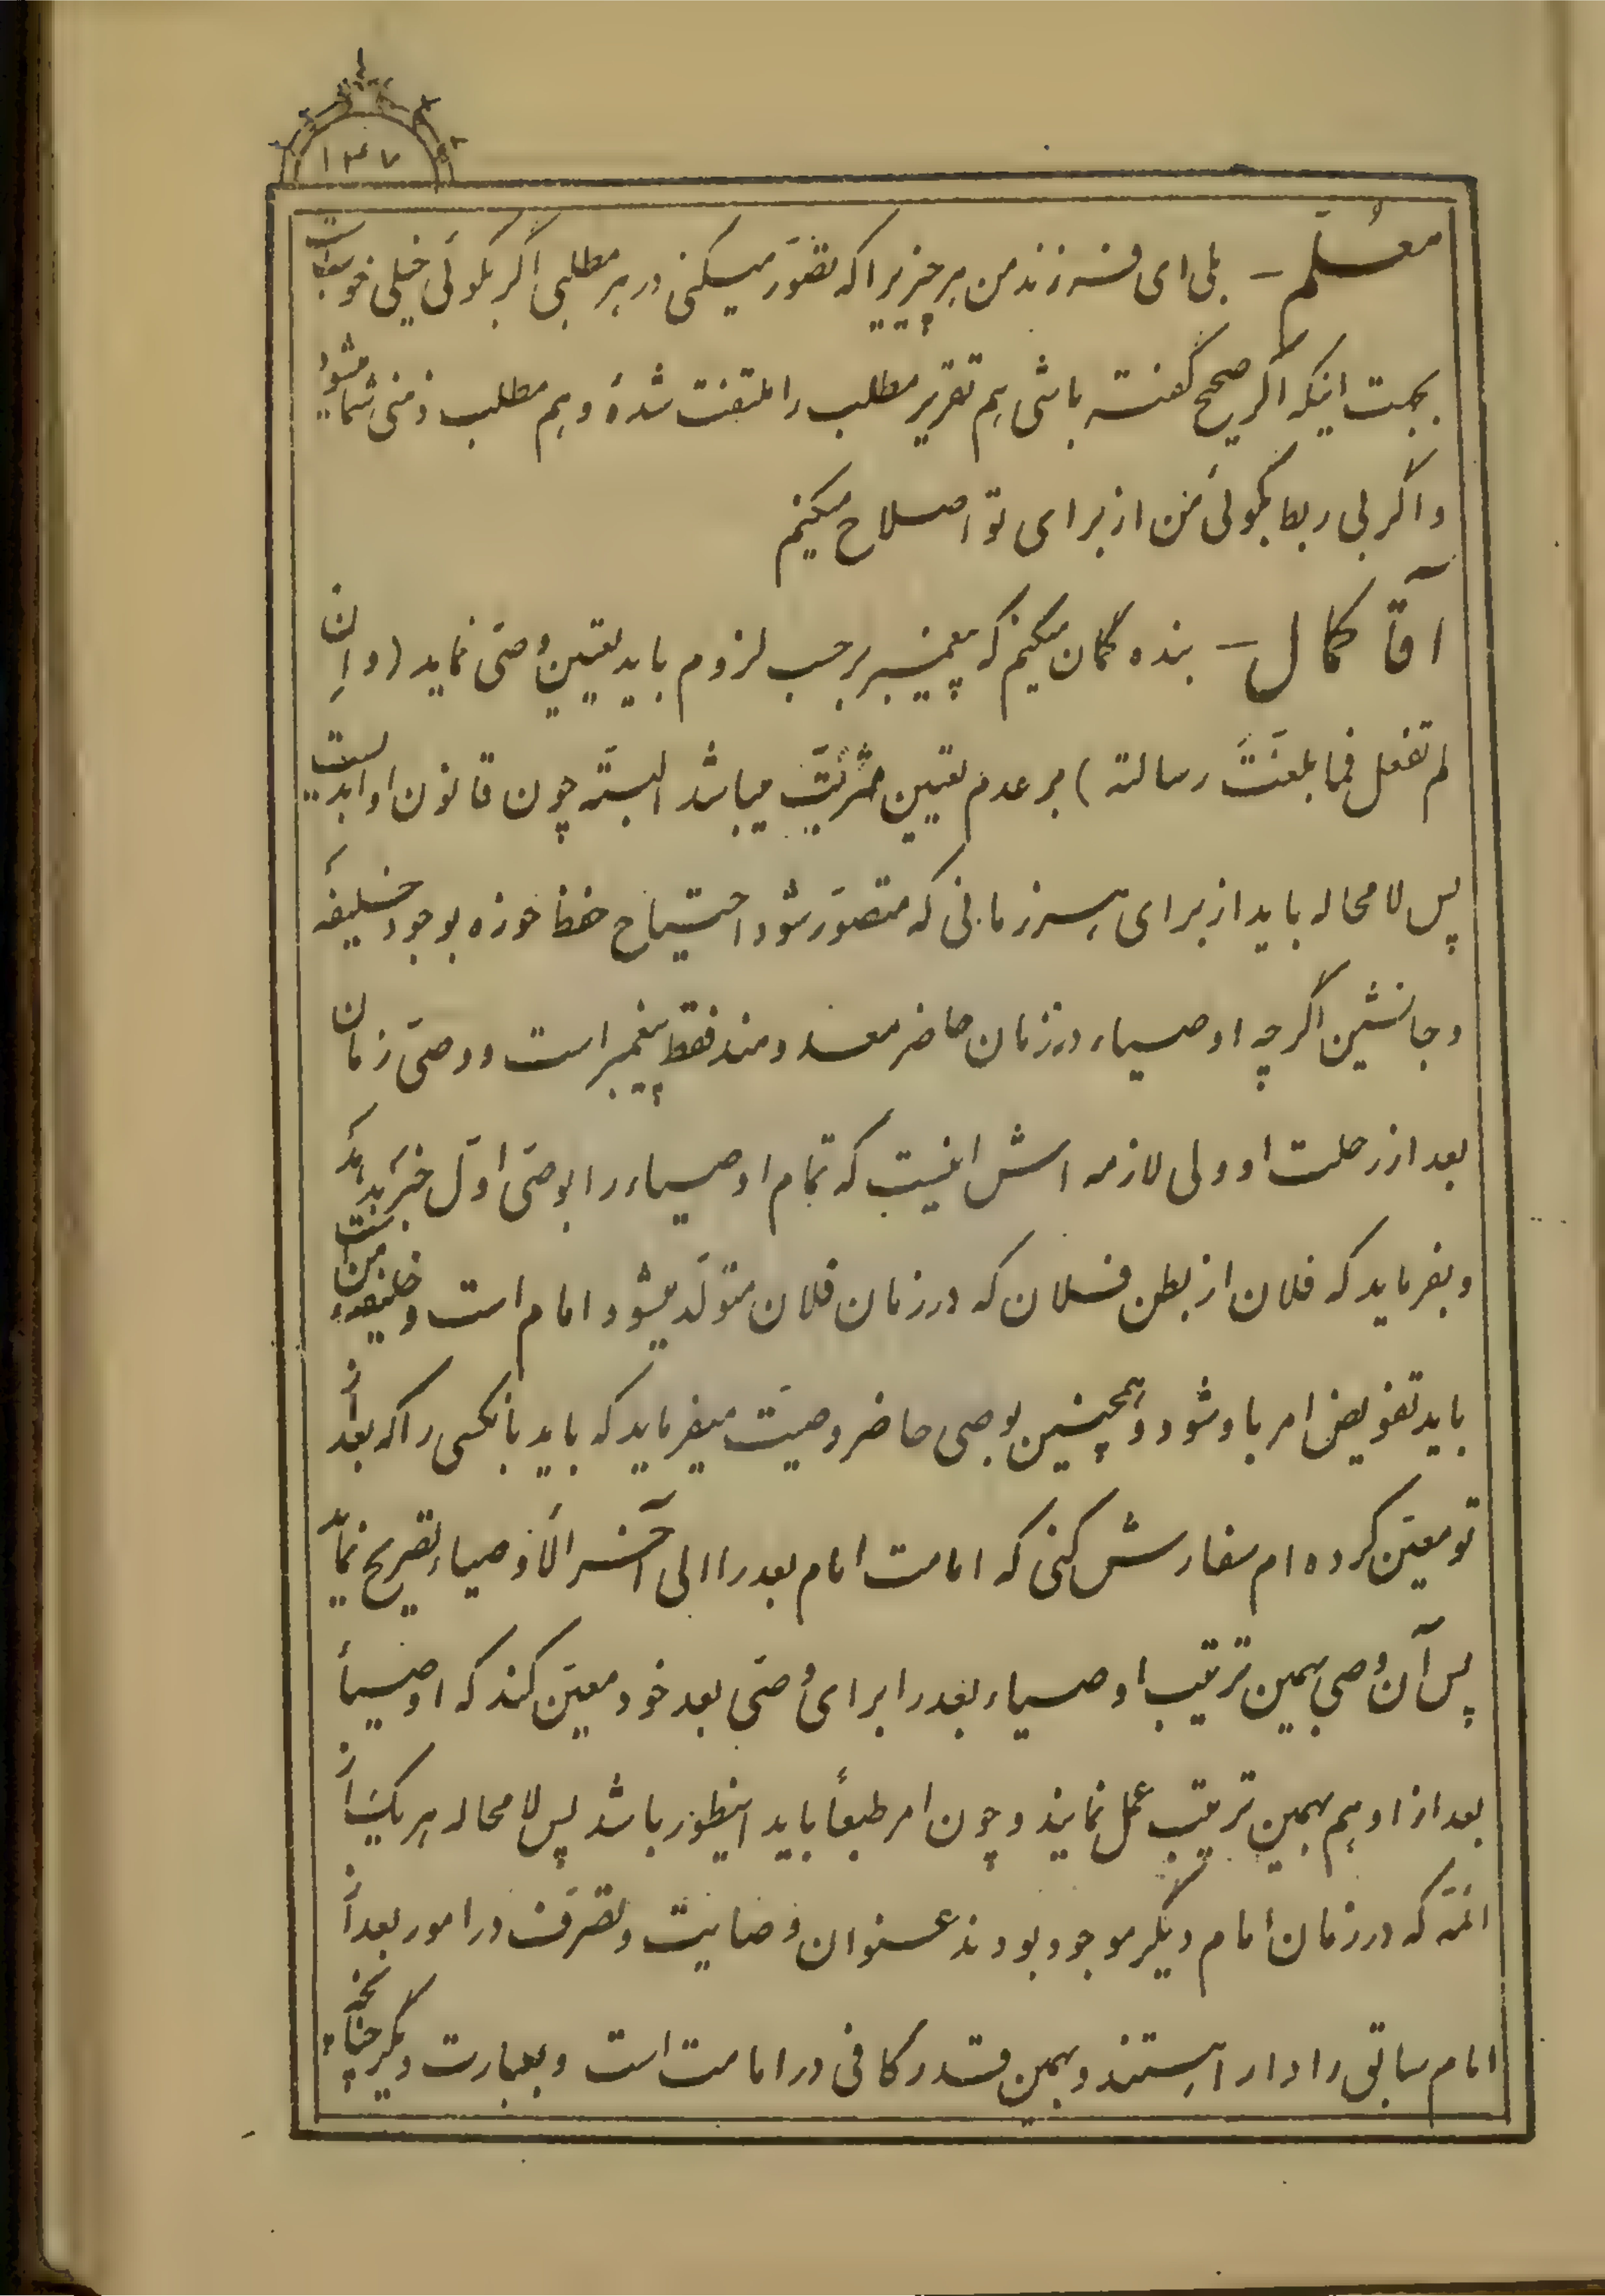 ۱۴۷
معلّم – بلی ای فرزند من هر چیزیرا که تصوّر میکنی در هر مطلبی اگر بگوئی خیلی خوبست
بجهت اینکه اگر صحیح گفته باشی هم تقریر مطلب را ملتفت شدهٔ و هم مطلب ذهنی شما میشود
و اگر بی ربط بگوئی من از برای تو اصلاح میکنم
آقا کمال – بنده گمان میکنم که پیغمبر بر حسب لزوم باید تعیین وصّی نماید (و اِن
لم تفعل فما بلغتَ رسالته) بر عدم تعیین مترتّب میباشد البتّه چون قانون او ابدیست
پس لا محاله باید از برای هر زمانی که متصوّر شود احتیاج حفظ حوزه بوجود خلیفه
و جانشین اگر چه اوصیاء در زمان حاضر معدومند فقط پیغمبر است و وصّی زمان
بعد از رحلت او ولی لازمه اش اینست که تمام اوصیاء را بوصّی اوّل خبر بدهد
و بفرماید که فلان از بطن فلان که در زمان فلان متولّد میشود امام است و خلیفهٔ من است
باید تفویض امر باو شود و همچنین بوصی حاضر وصیّت میفرماید که باید بانکسی را که بعد از
تو معیّن کرده ام سفارش کنی که امامت امام بعد را الی آخر الاوصیاء تصریح نماید
پس آن وصی بهمین ترتیب اوصیاء بعد را برای وصّی بعد خود معیّن کند که اوصیاء
بعد از او هم بهمین ترتیب عمل نمایند و چون امر طبعاً باید اینطور باشد پس لا محاله هر یک از
ائمّه که در زمان امام دیگر موجود بودند عنوان وصایت و تصرّف در امور بعد از
امام سابق را دارا هستند و همین قدر کافی در امامت است و بعبارت دیگر چنانچه